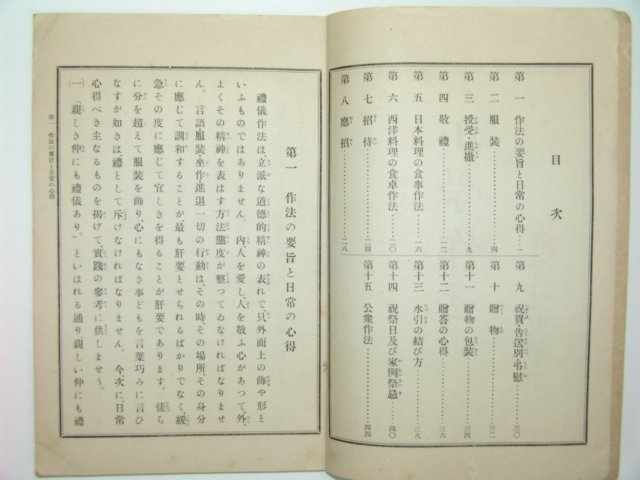 目次
第一 作法の要旨と日常の心得…一
第二 服装…四
第三 授受・進撤…九
第四 敬禮…
第五 日本料理の食事作法…一六
第六 西洋料理の食卓作法…二〇
第七 招待…二四
第八 應招…二八
第九 祝賀・告送別・弔慰…三〇
第十 贈物…三二
第十一 贈物の包装…三四
第十二 贈答の心得…三六
第十三 水引の結び方…三八
第十四 祝祭日及び家例祭忌…四〇
第十五 公衆作法…四四
第一 作法の要旨と日常の心得
禮儀作法は立派な道德的精神の表れで、只外面上の飾や形と
いふものではありません。内、人を愛し、人を敬ふ心があつて、外、
よくその精神を表はす方法態度が整つてゐなければなりませ
ん。言語服装坐作進退一切の行動は、その時、その場所、その身分
に應じて調和することが、最も肝要とせられるばかりでなく、緩
急その度に應じて宜しきを得ることが肝要であります。徒ら
に分を超えて服装を飾り、心にもなき事どもを言葉巧みに言ひ
なすが如きは禮として斥けなければなりません。今、次に、日常
心得べき主なるものを掲げて、實踐の參考に供しませう。
(一)「親しき仲にも禮儀あり」といはれる通り親しい仲にも禮
第一 作法の要旨と日常の心得